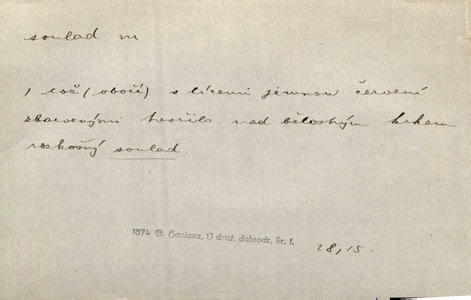 soulad m
, což (obočí) s lícemi jemnou červení
zbarvenými tvořilo nad běloskvým krkem
rozkošný soulad.
1874 B. Havlasa, V druž. dobrodr. kr. 1.
28, 15.